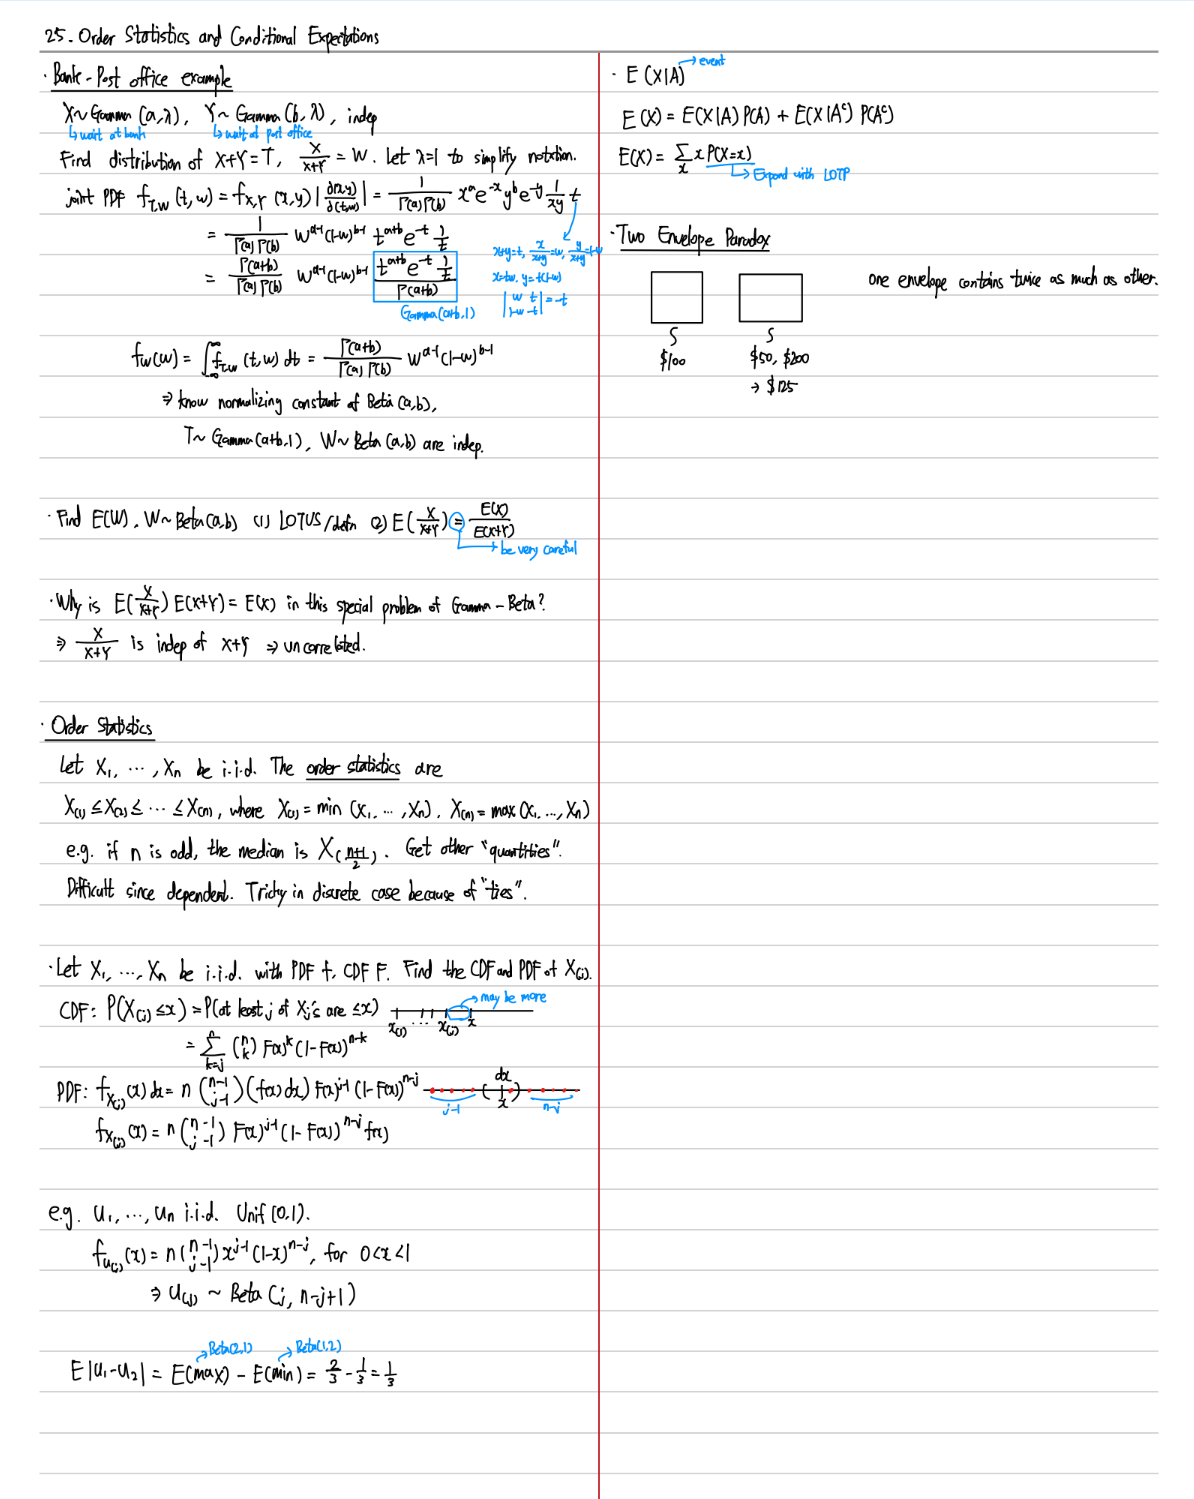 25. Order Statistics and Conditional Expectations
· Bank-Post office example
X~Gamma(a,λ), Y~Gamma(b,λ), indep
↳wait at bank ↳wait at post office
Find distribution of X+Y=T, X/(X+Y) = W. Let λ=1 to simplify notation.
joint PDF f_{T,W}(t,w) = f_{X,Y}(x,y)|∂(x,y)/∂(t,w)| = 1/(Γ(a)Γ(b)) x^a e^{-x} y^b e^{-y} 1/(xy) t
= 1/(Γ(a)Γ(b)) w^{a-1}(1-w)^{b-1} t^{a+b} e^{-t} 1/t
x+y=t, x/(x+y)=w, y/(x+y)=1-w
= Γ(a+b)/(Γ(a)Γ(b)) w^{a-1}(1-w)^{b-1} t^{a+b} e^{-t} 1/t / Γ(a+b)
x=tw, y=t(1-w)
Gamma(a+b,1)
|w t; 1-w -t| = -t
f_W(w) = ∫_{-∞}^{∞} f_{T,W}(t,w) dt = Γ(a+b)/(Γ(a)Γ(b)) w^{a-1}(1-w)^{b-1}
⇒ know normalizing constant of Beta(a,b),
T~Gamma(a+b,1), W~Beta(a,b) are indep.
· Find E(W), W~Beta(a,b) (1) LOTUS/defn (2) E(X/(X+Y)) = E(X)/E(X+Y)
→ be very careful
· Why is E(X/(X+Y)) E(X+Y) = E(X) in this special problem of Gamma-Beta?
⇒ X/(X+Y) is indep of X+Y ⇒ uncorrelated.
· Order Statistics
Let X₁, ⋯, Xn be i.i.d. The order statistics are
X(1) ≤ X(2) ≤ ⋯ ≤ X(n), where X(1) = min(X₁, ⋯, Xn), X(n) = max(X₁, ..., Xn)
e.g. if n is odd, the median is X((n+1)/2). Get other "quantities".
Difficult since dependent. Tricky in discrete case because of "ties".
· Let X₁, ⋯, Xn be i.i.d. with PDF f, CDF F. Find the CDF and PDF of X(j).
CDF: P(X(j) ≤ x) = P(at least j of Xj's are ≤x)
→ may be more
x(1) ⋯ x(j) x
= Σ_{k=j}^{n} (n k) F(x)^k (1-F(x))^{n-k}
PDF: f_{X(j)}(x)dx = n (n-1 j-1)(f(x)dx) F(x)^{j-1} (1-F(x))^{n-j}
dx
j-1 x n-j
f_{X(j)}(x) = n (n-1 j-1) F(x)^{j-1} (1-F(x))^{n-j} f(x)
e.g. U₁, ⋯, Un i.i.d. Unif(0,1).
f_{U(j)}(x) = n (n-1 j-1) x^{j-1} (1-x)^{n-j}, for 0<x<1
⇒ U(j) ~ Beta(j, n-j+1)
→Beta(2,1) →Beta(1,2)
E|U₁-U₂| = E(max) - E(min) = 2/3 - 1/3 = 1/3
· E(X|A) → event
E(X) = E(X|A) P(A) + E(X|A^c) P(A^c)
E(X) = Σ_x x P(X=x)
↳ Expand with LOTP
· Two Envelope Paradox
one envelope contains twice as much as other.
$100 $50, $200
→ $125